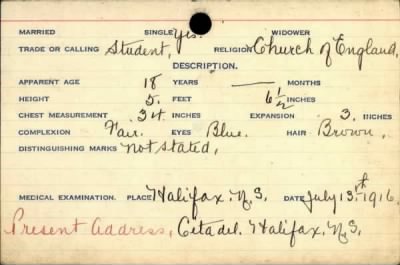 MARRIED SINGLE Yes. WIDOWER
TRADE OR CALLING Student, RELIGION Church of England,
DESCRIPTION.
APPARENT AGE 18 YEARS — MONTHS
HEIGHT 5. FEET 6½ INCHES
CHEST MEASUREMENT 34 INCHES EXPANSION 3. INCHES
COMPLEXION Fair. EYES Blue. HAIR Brown.
DISTINGUISHING MARKS not stated,
MEDICAL EXAMINATION. PLACE Halifax. N.S. DATE July 13th 1916.
Present Address, Citadel. Halifax, N.S,